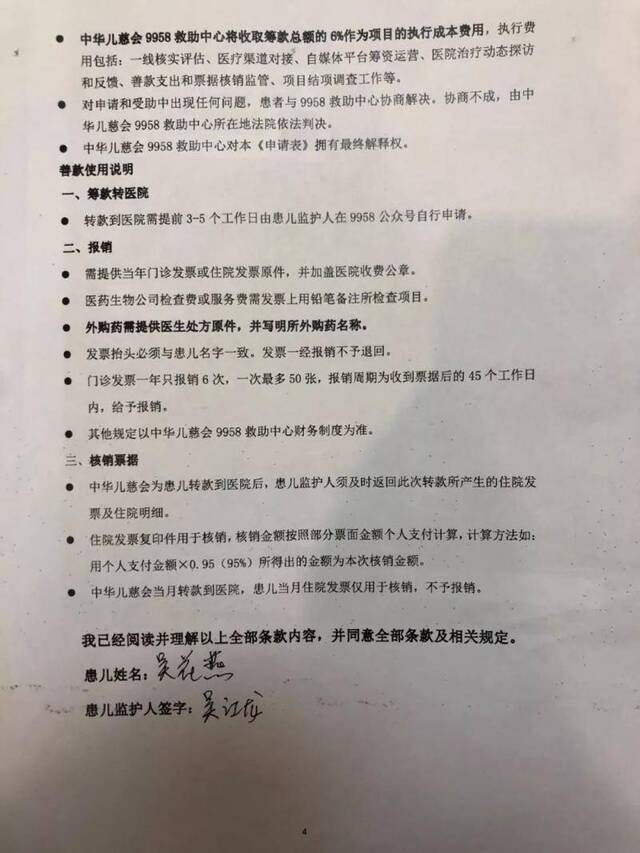 ● 中华儿慈会9958救助中心将收取筹款总额的6%作为项目的执行成本费用，执行费
用包括：一线核实评估、医疗渠道对接、自媒体平台筹资运营、医院治疗动态探访
和反馈、善款支出和票据核销监管、项目结项调查工作等。
● 对申请和受助中出现任何问题，患者与9958救助中心协商解决。协商不成，由中
华儿慈会9958救助中心所在地法院依法判决。
● 中华儿慈会9958救助中心对本《申请表》拥有最终解释权。
善款使用说明
一、筹款转医院
● 转款到医院需提前3-5个工作日由患儿监护人在9958公众号自行申请。
二、报销
● 需提供当年门诊发票或住院发票原件，并加盖医院收费公章。
● 医药生物公司检查费或服务费需发票上用铅笔备注所检查项目。
● 外购药需提供医生处方原件，并写明所外购药名称。
● 发票抬头必须与患儿名字一致。发票一经报销不予退回。
● 门诊发票一年只报销6次，一次最多50张，报销周期为收到票据后的45个工作日
内，给予报销。
● 其他规定以中华儿慈会9958救助中心财务制度为准。
三、核销票据
● 中华儿慈会为患儿转款到医院后，患儿监护人须及时返回此次转款所产生的住院发
票及住院明细。
● 住院发票复印件用于核销，核销金额按照部分票面金额个人支付计算，计算方法如:
用个人支付金额×0.95（95%）所得出的金额为本次核销金额。
● 中华儿慈会当月转款到医院，患儿当月住院发票仅用于核销，不予报销。
我已经阅读并理解以上全部条款内容，并同意全部条款及相关规定。
患儿姓名：吴花燕
患儿监护人签字：吴江龙
4